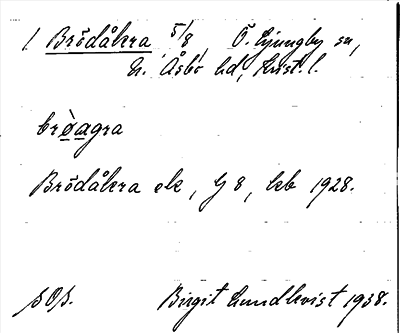 1. Brödåkra 5/8, Ö. Ljungby sn,
N. Åsbo hd, Krist. l.
brøagra
Brödåkra ek, G 8, kb 1928.
SOS.
Birgit Lundkvist 1938.